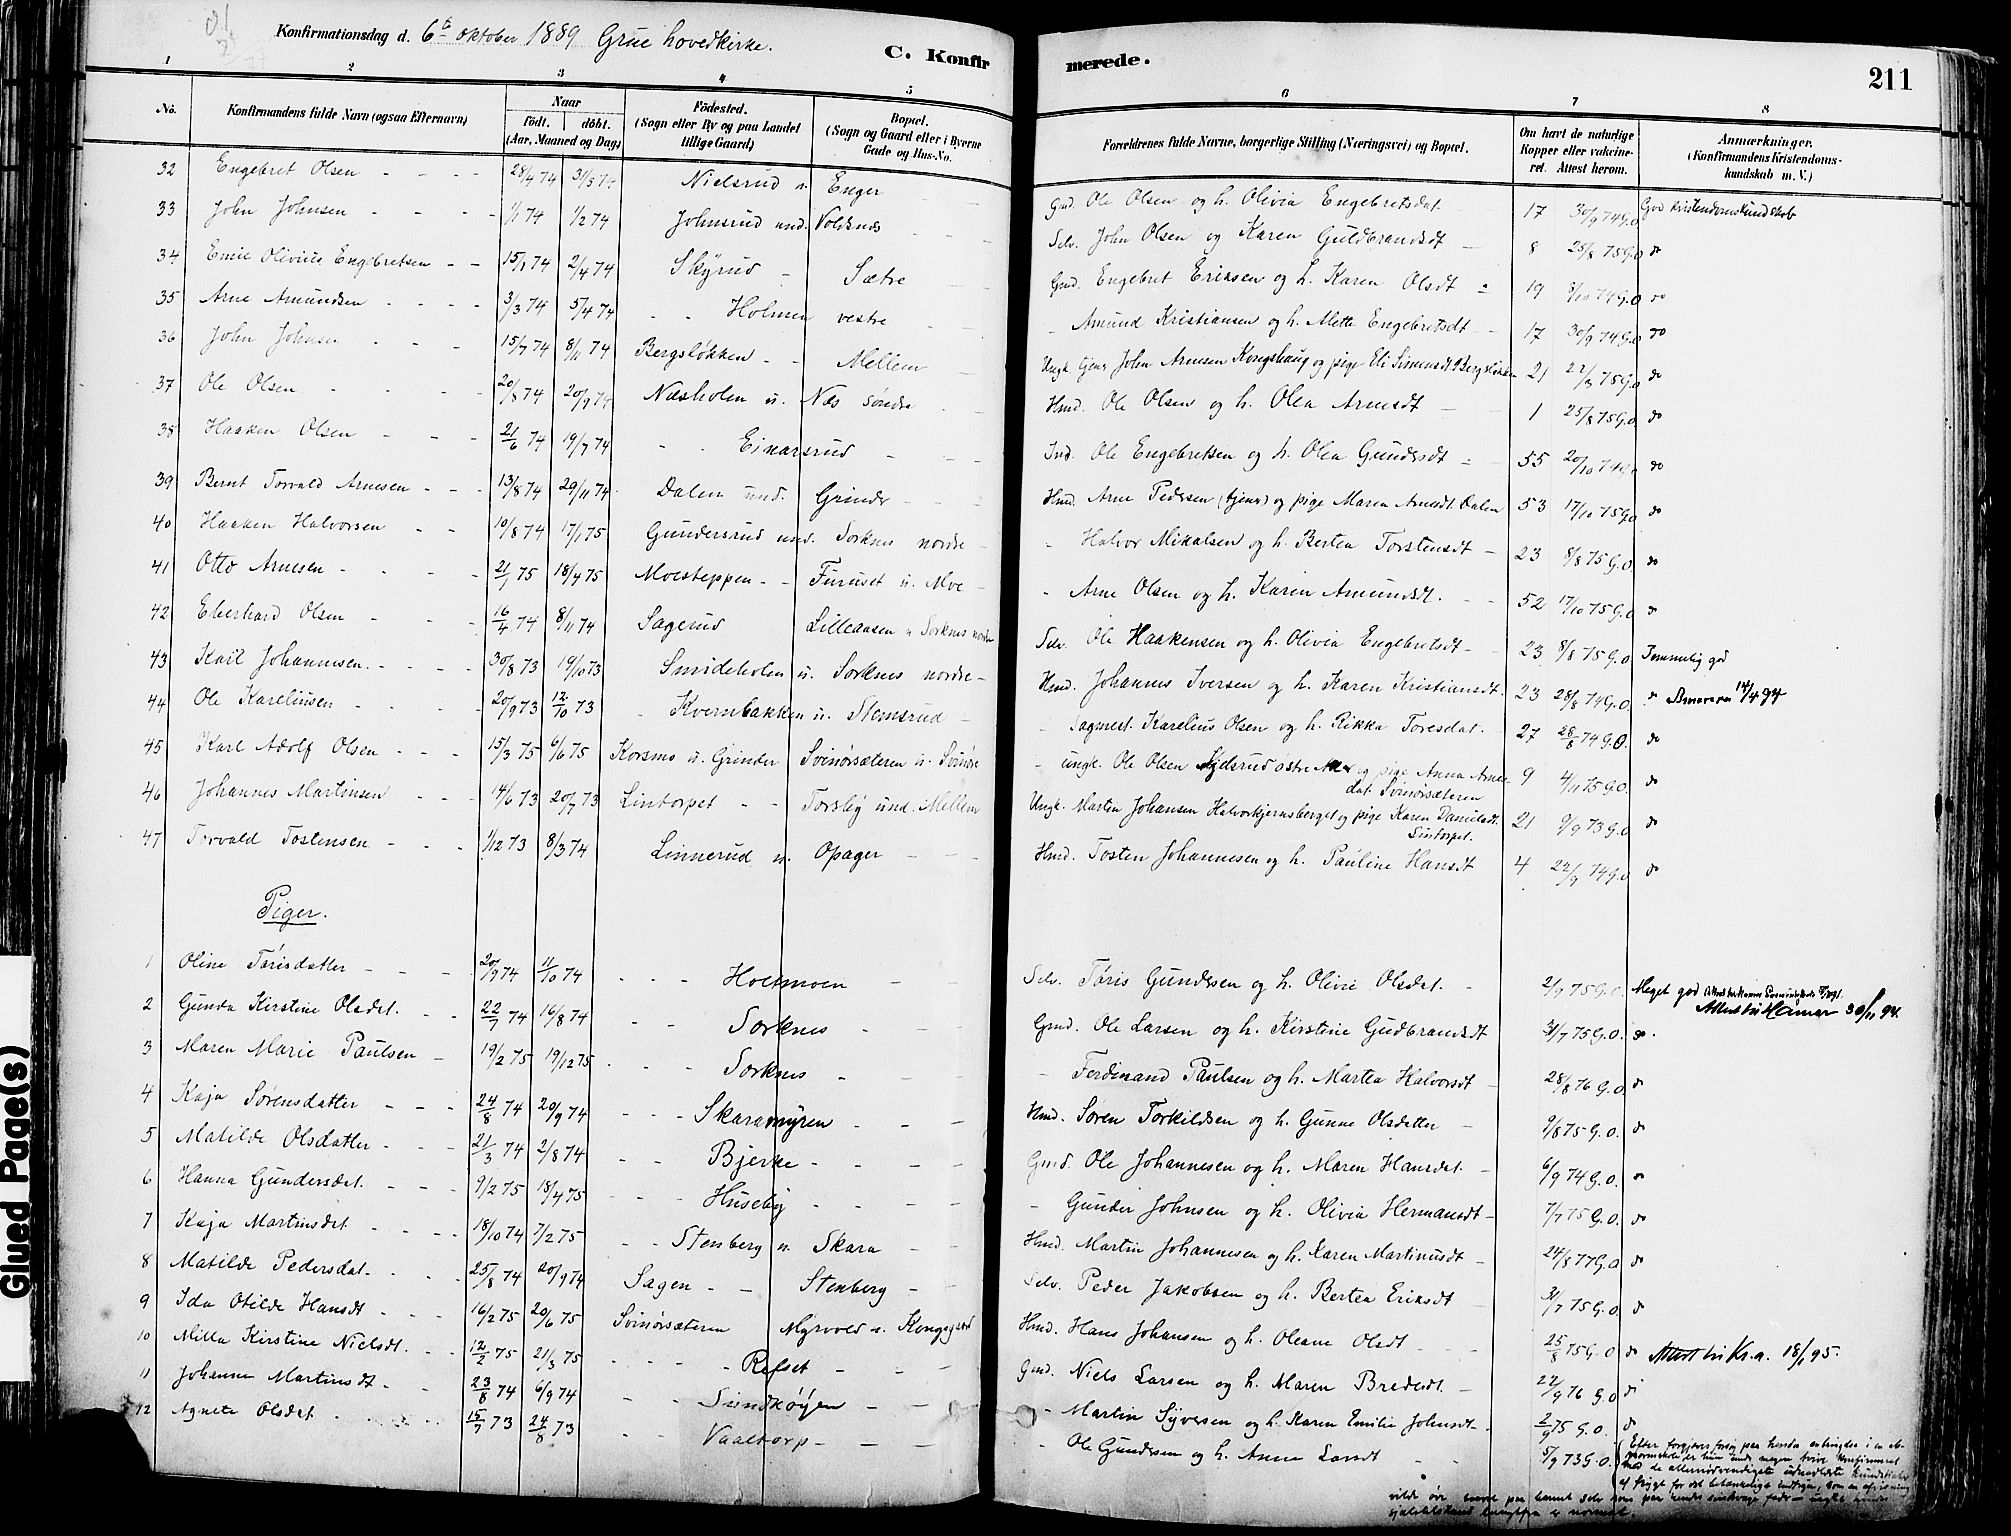 Konfirmationsdag d. 6te oktober 1889 Grue hovedkirke.
C. Konfirmerede.
211
1 2 3 4 5 6 7 8
No. Konfirmandens fulde Navn (ogsaa Efternavn) Naar Födt. döbt. (Aar, Maaned og Dag) Födested. (Sogn eller By og paa Landet tillige Gaard) Bopæl. (Sogn og Gaard eller i Byerne Gade og Hus-No. Forældrenes fulde Navne, borgerlige Stilling (Næringsvei) og Bopæl. Om havt de naturlige Kopper eller vakcineret. Attest herom. Anmærkninger. (Konfirmandens Kristendomskundskab m. V.)
32 Engebret Olsen 28/4 74 31/5 74 Nielsrud u. Enger Gmd. Ole Olsen og h. Olivia Engebretsdat. 17 30/9 74 G.O God Kristendomskundskab
33 John Johnsen 1/1 74 1/2 74 Johnsrud und. Voldnæs Selv. John Olsen og Karen Guldbrandsdt 8 25/8 75 G.O do
34 Emil Olivius Engebretsen 15/1 74 2/4 74 Skyrud Sætre Gmd. Engebret Eriksen og h. Karen Olsdt 19 8/10 74 G.O do
35 Arne Amundsen 3/3 74 5/4 74 Holmen vestre Amund Kristiansen og h. Mette Engebretsdt 17 30/9 74 G.O do
36 John Johnsen 15/7 74 8/11 74 Bergsløkken Mellem Ungk. tjener John Arnesen Kongshaug og pige Eli Simensdt. Bergsløkken 21 22/3 75 G.O do
37 Ole Olsen 20/8 74 20/9 74 Næsholen u. Næs søndre Hmd. Ole Olsen og h. Olea Arnesdt 1 25/8 75 G.O do
38 Haaken Olsen 21/6 74 19/7 74 Einarsrud Ind. Ole Engebretsen og h. Olea Gundersdt 55 20/10 74 G.O do
39 Bernt Torvald Arnesen 13/8 74 29/11 74 Dalen und. Grinder Hmd. Arne Pedersen (tjener) og pige Maren Arnesdt. Dalen 53 17/10 75 G.O do
40 Haaken Halvorsen 10/8 74 17/1 75 Gundersrud und. Sorknes nordre Halvor Mikalsen og h. Bertea Torstensdt 23 8/8 75 G.O. do
41 Otto Arnesen 21/1 75 18/4 75 Moesteppen Furuset u. Moe Arne Olsen og h. Karen Amundsdt. 52 17/10 75 G.O do
42 Eberhard Olsen 16/4 74 8/11 74 Sagerud Lilleaasen u Sorknes nordre Selv. Ole Haakensen og h. Olivia Engebretsdt 23 8/8 75 G.O. Temmelig god
43 Karl Johannesen 30/8 73 19/10 73 Smideholen u. Sorknes nordre Hmd. Johannes Iversen og h. Karen Kristiansdt. 23 28/8 74 G.O. do 14/4 94
44 Ole Kareliusen 20/9 73 12/10 73 Kvernbakken u. Stemsrud Sagmest. Karelius Olsen og h. Rikka Toresdat. 27 28/8 74 G.O. do
45 Karl Adolf Olsen 15/3 75 6/6 75 Korsmo u. Grinder Svinørsæteren u. Svinøre ungk. Ole Olsen østre og pige Anna Arnesdat. Svinørsæteren 9 4/11 75 G.O. do
46 Johannes Martinsen 14/6 73 20/7 73 Lintorpet Torsby und. Mellem Ungk. Marten Johansen Halvorkjernsberget og pige Karen Danielsdt. Lintorpet. 21 9/9 73 G.O do
47 Torvald Tostensen 1/12 73 8/3 74 Linnerud u. Opager Hmd. Tosten Johannesen og h. Pauline Hansdt 4 22/9 74 G.O do
Piger.
1 Oline Tørisdatter 20/9 74 11/10 74 Holtmoen Selv. Tøris Gundersen og h. Olivie Olsdat. 2/7 75 G.O. Meget god
2 Gunda Kirstine Olsdat. 22/7 74 16/8 74 Sorknes Gmd. Ole Larsen og h. Kirstine Gudbrandsdt 31/7 75 G.O. do. Attest til Hamar 30/11 94.
3 Maren Marie Paulsen 19/2 75 19/12 75 Sorknes Ferdinand Paulsen og h. Martea Halvorsdt 28/8 76 G.O. do
4 Kaja Sørensdatter 24/8 74 20/9 74 Skaramyren Hmd. Søren Torkildsen og h. Gunne Olsdatter 9/8 75 G.O. do
5 Matilde Olsdatter 21/3 74 2/8 74 Bjerke Gmd. Ole Johannesen og h. Maren Hansdat. 6/9 74 G.O. do
6 Hanna Gundersdat. 9/2 75 18/4 75 Huseby Gunder Johnsen og h. Olivia Hermansdt 7/7 75 G.O. do
7 Kaja Martinsdat. 18/10 74 7/2 75 Stenberg u. Skara Hmd. Martin Johannesen og h. Karen Martinusdt 24/8 77 G.O do
8 Matilde Pedersdat. 25/8 74 20/9 74 Sagen Stenberg Selv. Peder Jakobsen og h. Bertea Eriksdt 31/7 75 G.O. do
9 Ida Otilde Hansdt 16/2 75 20/6 75 Svinørsæteren Myrvold u. Kongsgaard Hmd. Hans Johansen og h. Oleane Olsdt 25/8 75 G.O do Attest til Kr.a. 18/1 95.
10 Milla Kirstine Nielsdt. 12/2 75 21/3 75 Refset Gmd. Niels Larsen og h. Maren Bredesdt. 22/9 76 G.O do
11 Johanne Martinsdt 23/8 74 6/9 74 Sundkøien Martin Syversen og h. Karen Emilie Johnsdt 2/9 75 G.O. do
12 Agnete Olsdat. 15/7 73 24/8 73 Vaaltorp Ole Gundersen og h. Anne Larsdt 5/9 73 G.O. Efter forgjæves forsøg paa hendes anbringelse i en abnormskole er hun med megen tvivl konfirmeret med de allernødvendigste kundskaber
Glued Page(s)